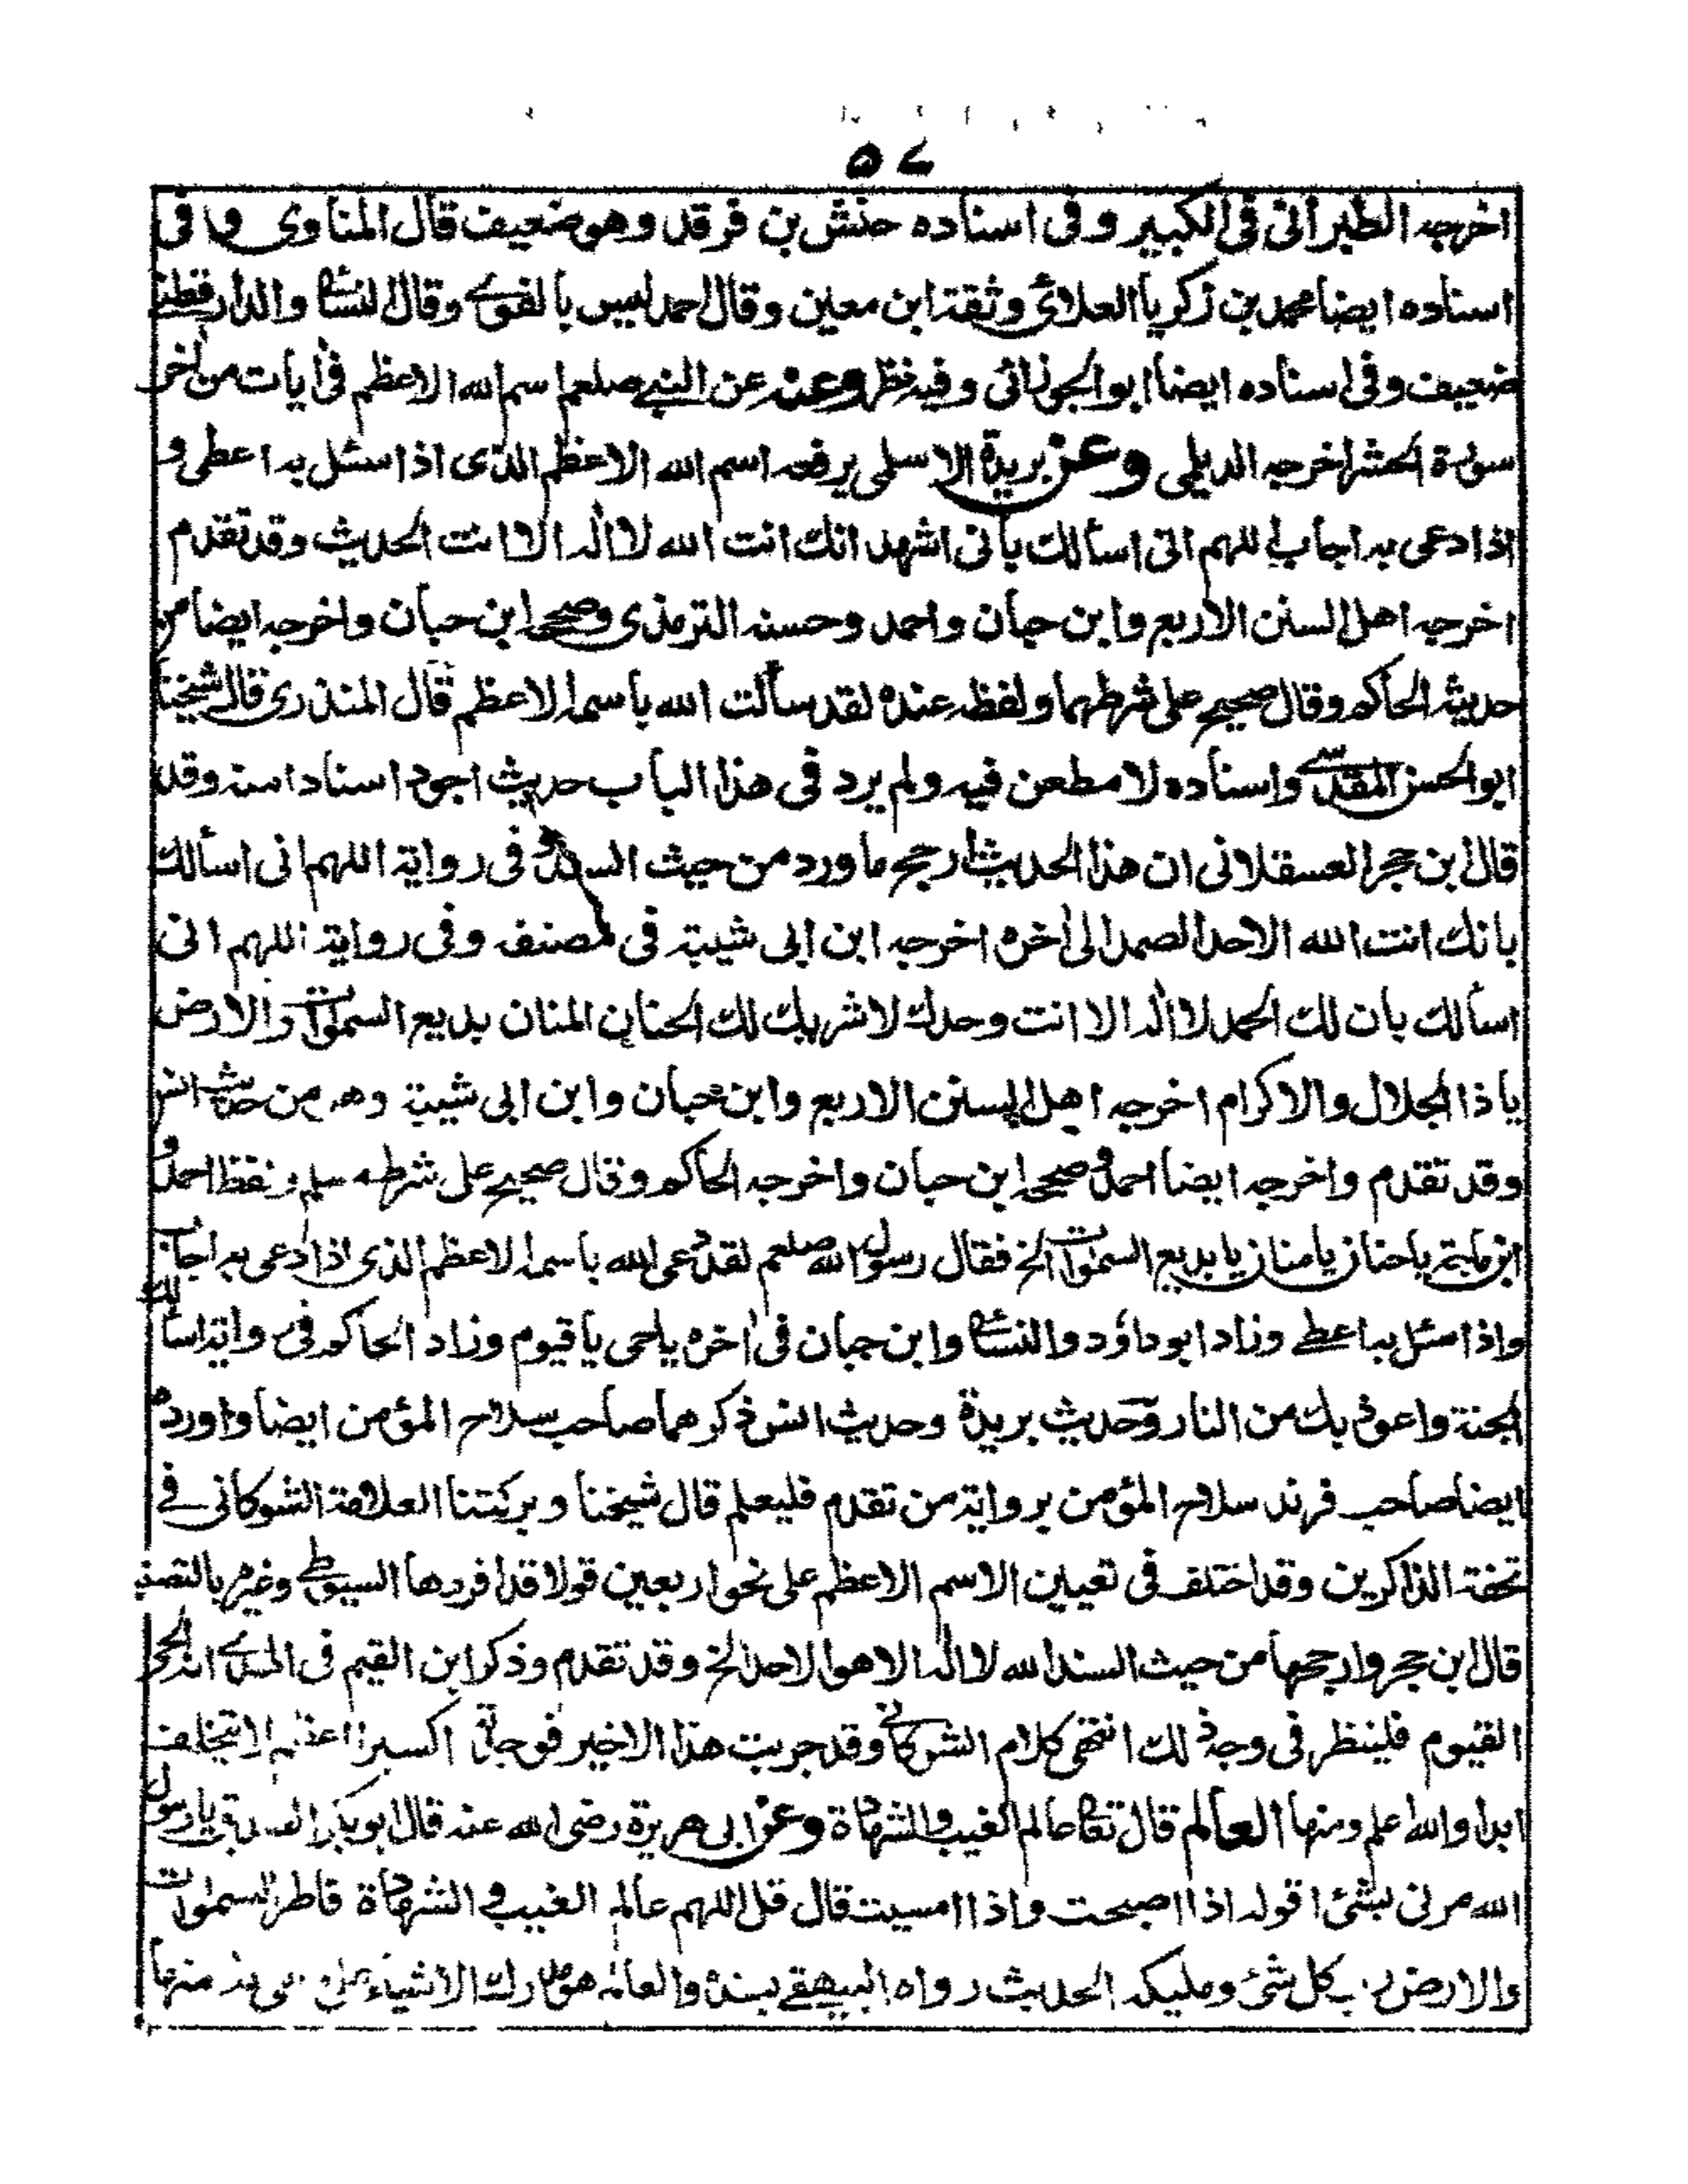 ٥٧
اخرجه الطبرانى فى الكبير وفى اسناده حنش بن فرقد وهو ضعيف قال المناوى وفى
اسناده ايضا محمد بن زكريا العلائى وثقه ابن معين وقال احمد ليس بالقوى وقال النسائى والدارقطنى
ضعيف وفى اسناده ايضا ابو الجوزائى وفيه نظر وعنه عن النبى صلعم اسم الله الاعظم فى ايات من اخر
سورة الحشر اخرجه الديلمى وعن بريدة الاسلمى يرفعه اسم الله الاعظم الذى اذا سئل به اعطى و
اذا دعى به اجاب اللهم انى اسألك بأنى اشهد انك انت الله لا اله الا انت الحديث وقد تقدم
اخرجه اهل السنن الاربع وابن حبان واحمد وحسنه الترمذى وصححه ابن حبان واخرجه ايضا من
حديثه الحاكم وقال صحيح على شرطهما ولفظه عنده لقد سألت الله باسمه الاعظم قال المنذرى قال شيخنا
ابو الحسن المقدسى واسناده لا مطعن فيه ولم يرد فى هذا الباب حديث اجود اسنادا منه وقد
قال ابن حجر العسقلانى ان هذا الحديث ارجح ما ورد من حيث السند وفى رواية اللهم انى اسألك
بانك انت الله الاحد الصمد الى اخره اخرجه ابن ابى شيبة فى لمصنف وفى رواية اللهم انى
اسألك بان لك الحمد لا اله الا انت وحدك لا شريك لك الحنان المنان بديع السموات والارض
يا ذا الجلال والاكرام اخرجه اهل السنن الاربع وابن حبان وابن ابى شيبة وهو من حديث انس
وقد تقدم واخرجه ايضا احمد وصححه ابن حبان واخرجه الحاكم وقال صحيح على شرط مسلم ولفظ احمد و
ابن ماجة يا حنان يا منان يا بديع السموات الخ فقال رسول الله صلعم لقد دعى الله باسمه الاعظم الذى اذا دعى به اجاب
واذا سئل به اعطى وزاد ابو داؤد والنسائى وابن حبان فى اخره يا حى يا قيوم وزاد الحاكم فى رواية اسألك
الجنة واعوذ بك من النار وحديث بريدة وحديث انس ذكرهما صاحب سلاح المؤمن ايضا واورده
ايضا صاحب فرند سلاح المؤمن برواية من تقدم فليعلم قال شيخنا وبركتنا العلامة الشوكانى فى
تحفة الذاكرين وقد اختلف فى تعيين الاسم الاعظم على نحو اربعين قولا قد افردها السيوطى وغيره بالتصنيف
قال ابن حجر وارجحها من حيث السند الله لا اله الا هو الاحد الخ وقد تقدم وذكر ابن القيم فى الهدى انه الحى
القيوم فلينظر فى وجه ذلك انتهى كلام الشوكانى وقد جربت هذا الاخير فوجدته اكسيرا اعظم لا يتخلف
ابدا والله اعلم ومنها العالم قال تعالى عالم الغيب والشهادة وعن ابى هريرة رضى الله عنه قال ابو بكر الصديق يا رسول
الله مرنى بشئ اقوله اذا اصبحت واذا امسيت قال قل اللهم عالم الغيب والشهادة فاطر السموات
والارض رب كل شئ ومليكه الحديث رواه البيهقى بسنده والعالم هو مدرك الاشياء على منها